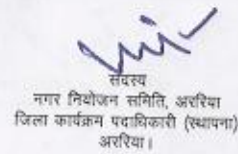 सदस्य
नगर नियोजन समिति, अररिया
जिला कार्यक्रम पदाधिकारी (स्थापना)
अररिया।